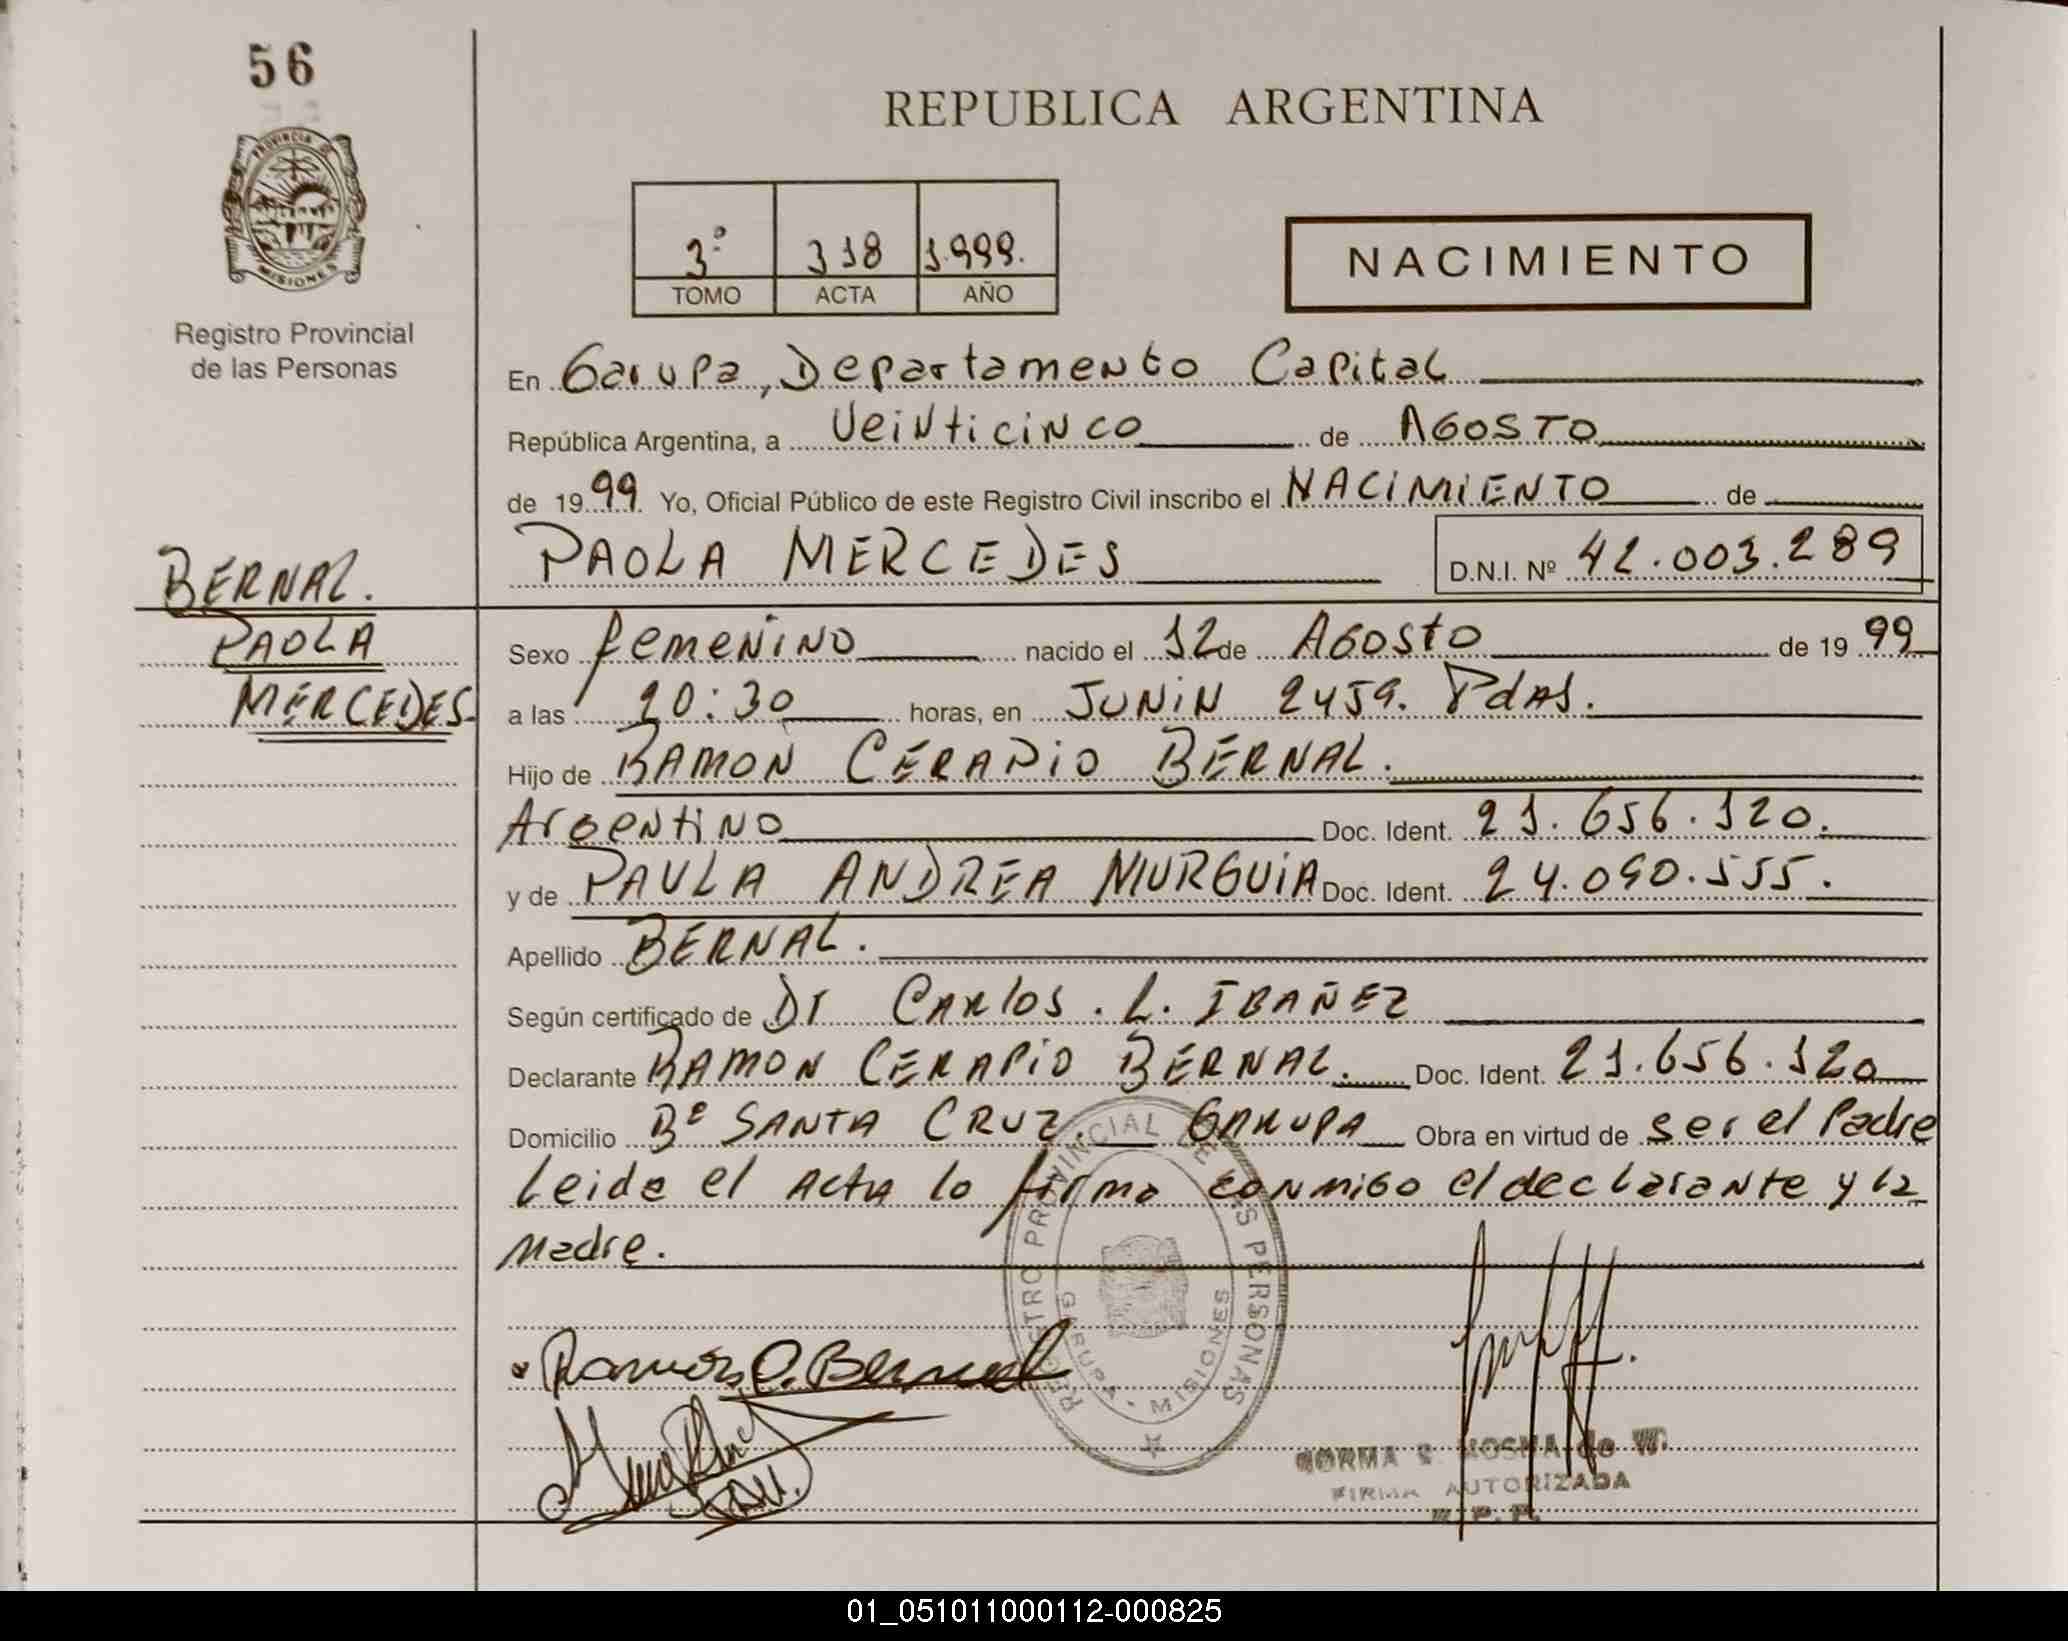 56
REPUBLICA ARGENTINA
PROVINCIA DE
MISIONES
Registro Provincial
de las Personas
3º 318 1.999.
TOMO ACTA AÑO
NACIMIENTO
En Garupa, Departamento Capital
República Argentina, a Veinticinco de AGOSTO
de 1999 Yo, Oficial Público de este Registro Civil inscribo el NACIMIENTO de
PAOLA MERCEDES D.N.I. Nº 42.003.289
BERNAL.
PAOLA
MERCEDES.
Sexo femenino nacido el 12 de Agosto de 1999
a las 20:30 horas, en JUNIN 2459. Pdas.
Hijo de RAMON CERAPIO BERNAL.
Argentino Doc. Ident. 21.656.120.
y de PAULA ANDREA MURGUIA Doc. Ident. 24.090.555.
Apellido BERNAL.
Según certificado de Dr CARLOS. L. IBAÑEZ
Declarante RAMON CERAPIO BERNAL. Doc. Ident. 21.656.120
Domicilio Bº SANTA CRUZ. GARUPA Obra en virtud de ser el Padre
Leida el Acta lo firma conmigo el declarante y la
Madre.
REGISTRO PROVINCIAL DE LAS PERSONAS
GARUPA - MISIONES
Ramón C. Bernal
NORMA
FIRMA AUTORIZADA
01_051011000112-000825